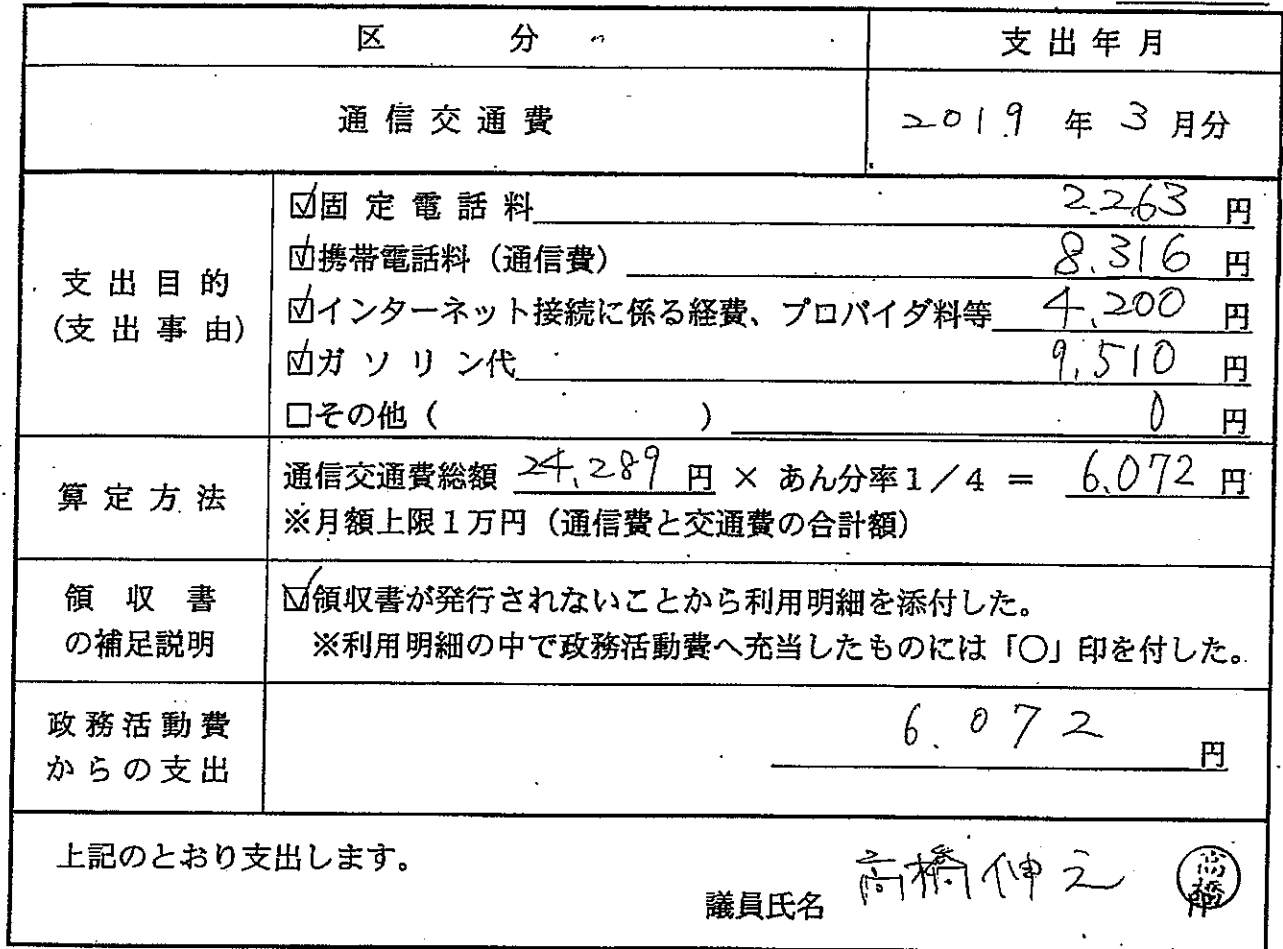 区分 支出年月
通信交通費 2019 年 3 月分
支出目的
(支出事由)
☑固定電話料 2.263 円
☑携帯電話料（通信費） 8.316 円
☑インターネット接続に係る経費、プロバイダ料等 4,200 円
☑ガソリン代 9,510 円
□その他（ ） 0 円
算定方法
通信交通費総額 24,289 円 × あん分率1／4 = 6,072 円
※月額上限1万円（通信費と交通費の合計額）
領収書
の補足説明
☑領収書が発行されないことから利用明細を添付した。
※利用明細の中で政務活動費へ充当したものには「○」印を付した。
政務活動費
からの支出
6.072 円
上記のとおり支出します。
議員氏名 高橋伸之 高橋 印